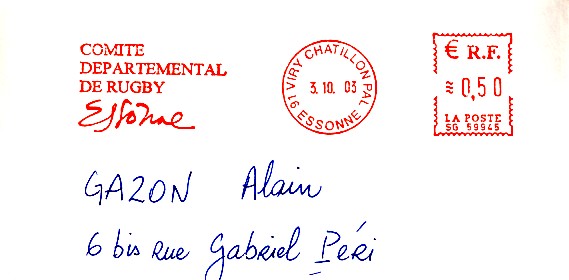 COMITE
DEPARTEMENTAL
DE RUGBY
Essonne
91 VIRY CHATILLON PAL
ESSONNE
3. 10. 03
€ R.F.
≋ 0,50
LA POSTE
SG 59945
GAZON Alain
6 bis rue Gabriel Péri